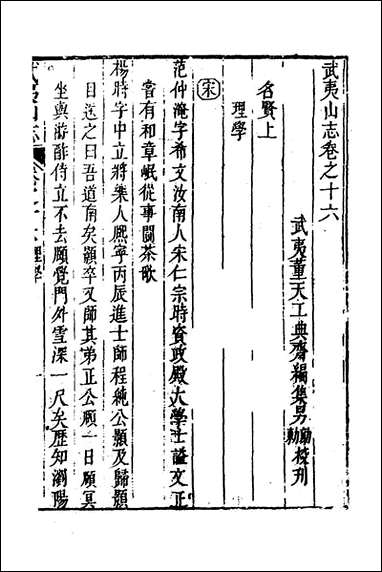 武夷山志卷之十六
武夷董天工典齋編集男勳勅校刋
名賢上
理學
宋
范仲淹字希文汝南人宋仁宗時資政殿大學士謚文正
嘗有和章岷從事鬬茶歌
楊時字中立將樂人熈寧丙辰進士師程純公顥及歸顥
目送之曰吾道南矣顥卒又師其弟正公頤一日頤冥
坐與游酢侍立不去頤覺門外雪深一尺矣歴知瀏陽
武夷山志 卷之十六 理學 一